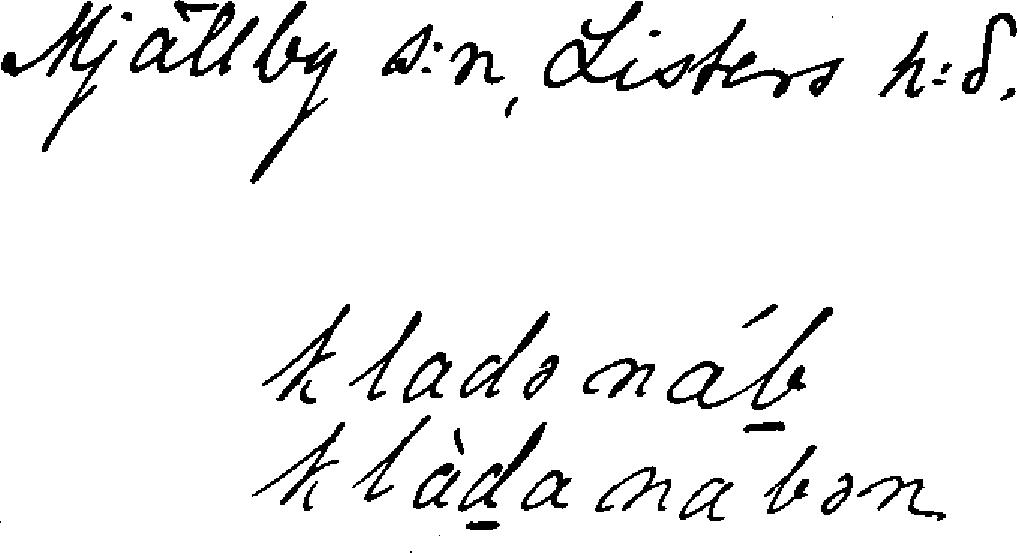 Mjällby s:n, Listers h:d.
kladənáb̲
klàd̲anabən